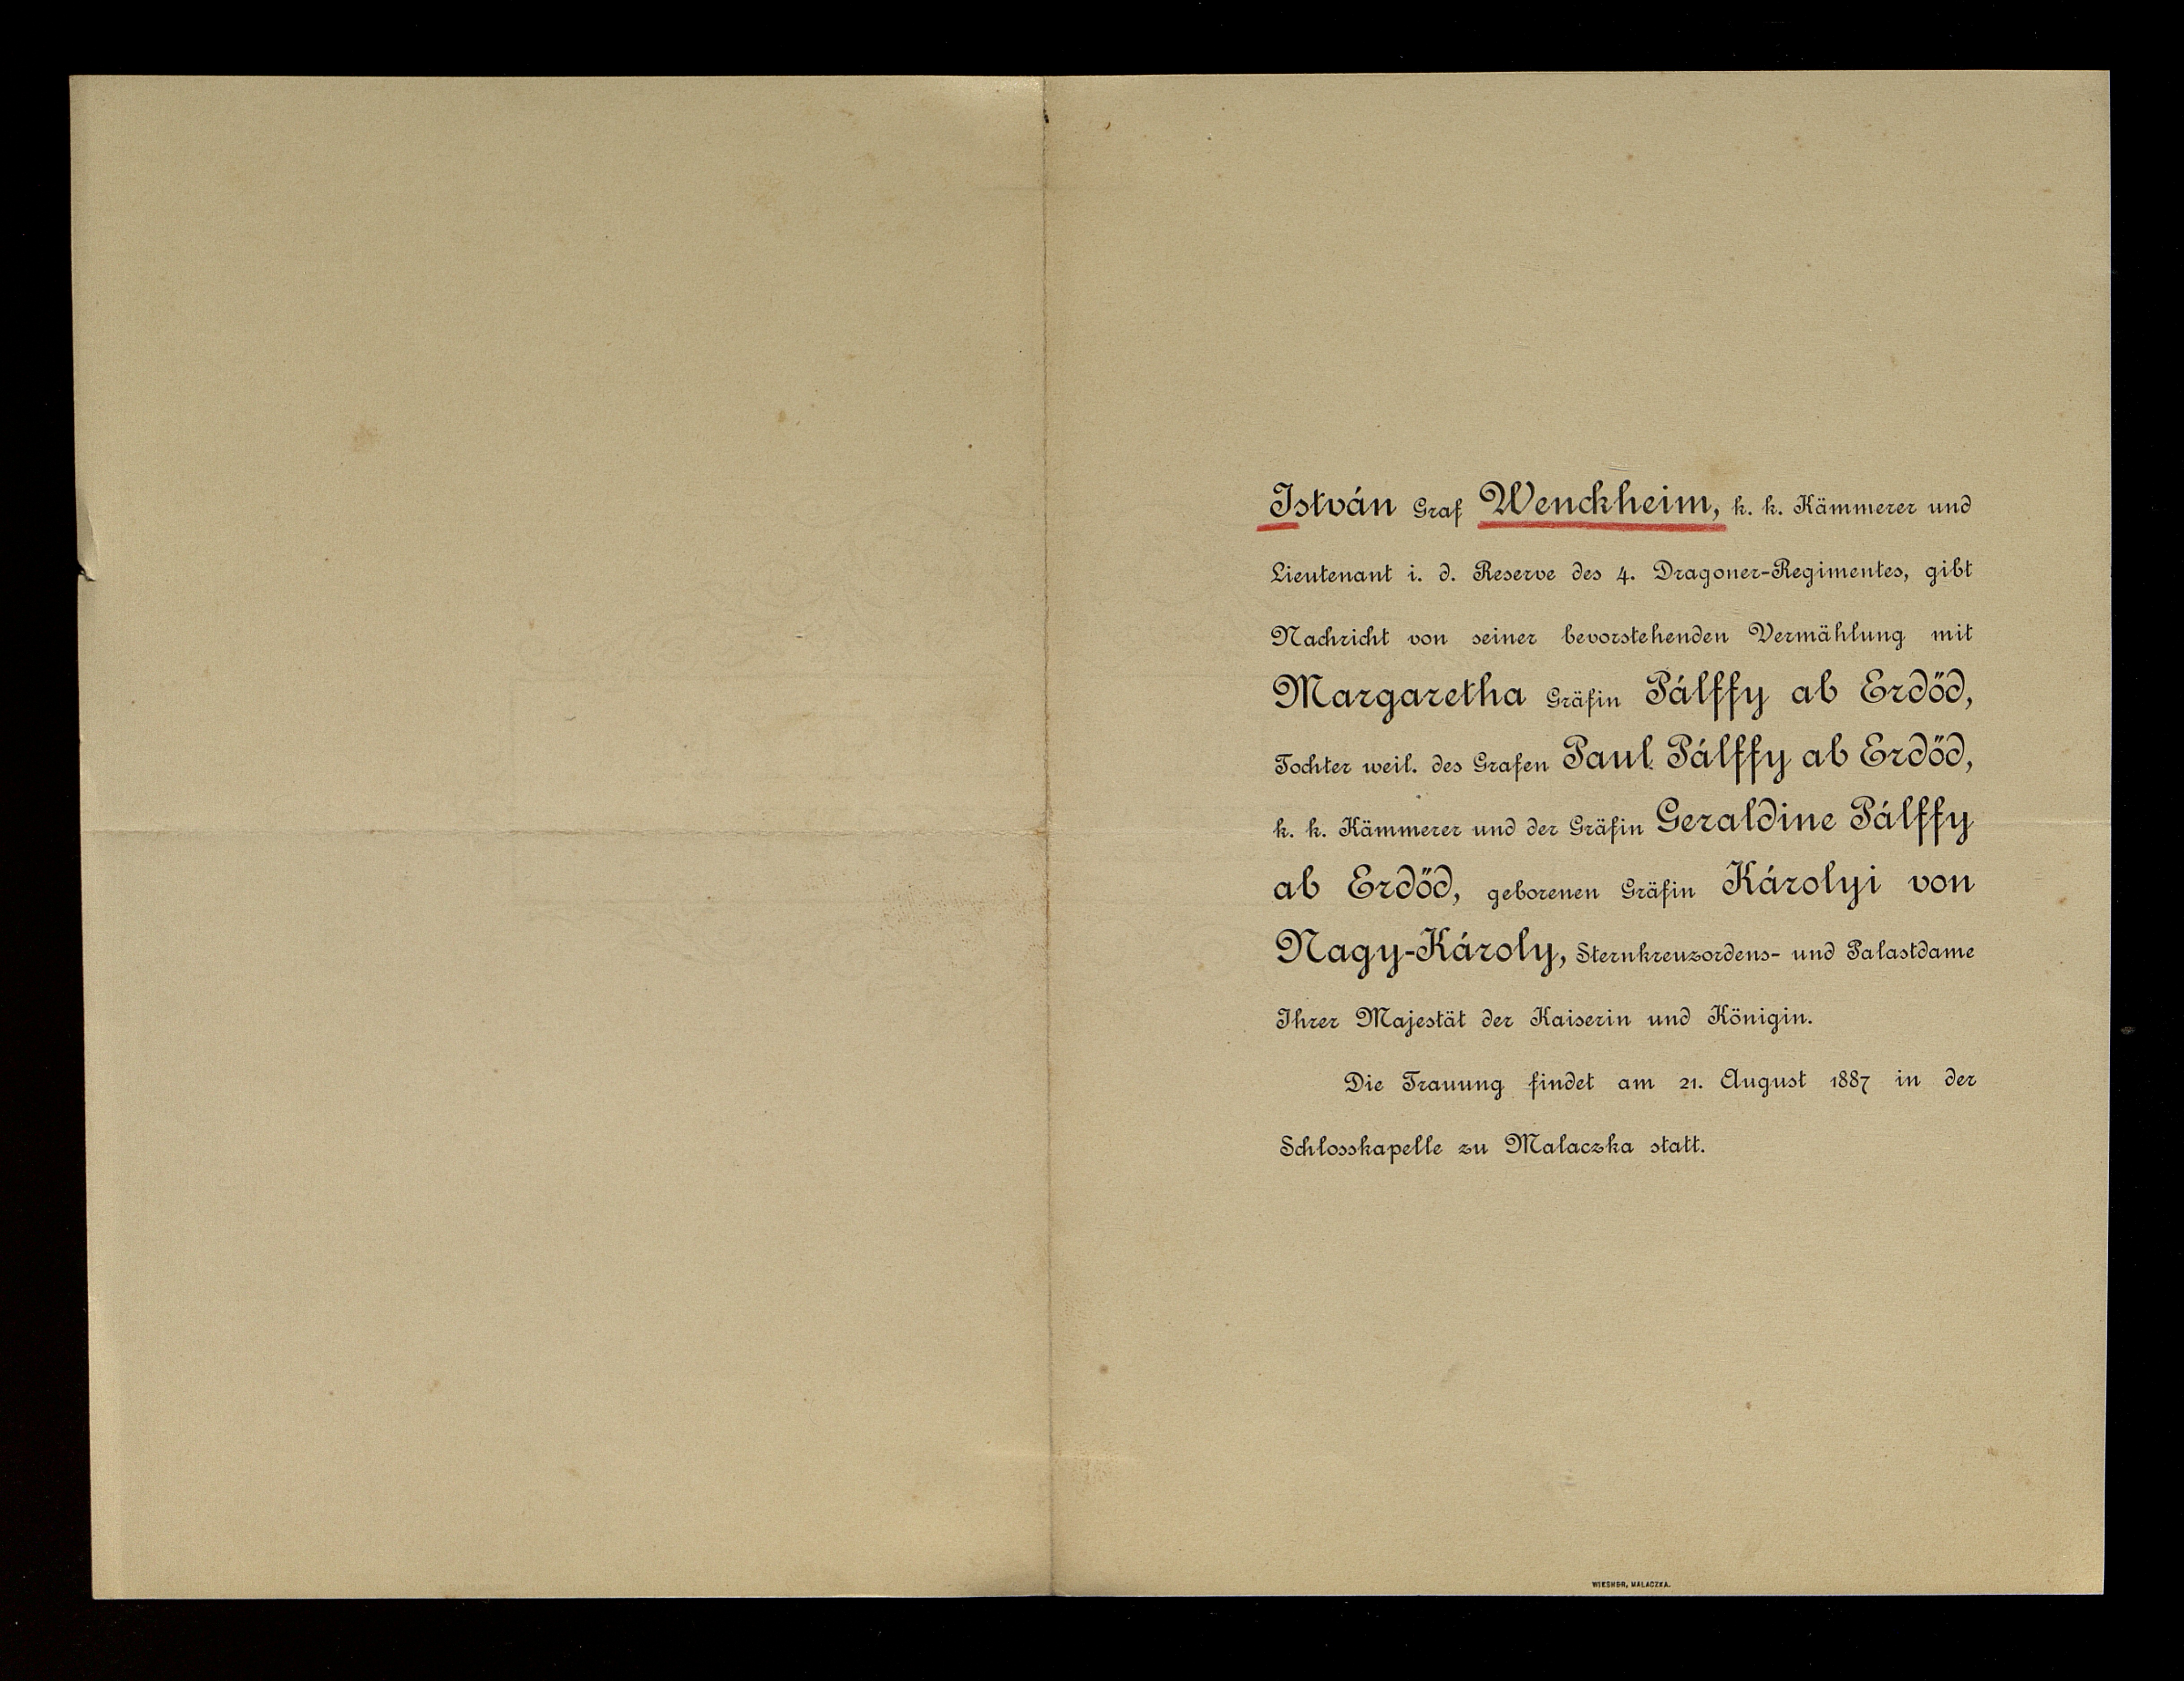 István Graf Wenckheim, k. k. Kämmerer und
Lieutenant i. d. Reserve des 4. Dragoner-Regimentes, gibt
Nachricht von seiner bevorstehenden Vermählung mit
Margaretha Gräfin Pálffy ab Erdőd,
Tochter weil. des Grafen Paul Pálffy ab Erdőd,
k. k. Kämmerer und der Gräfin Geraldine Pálffy
ab Erdőd, geborenen Gräfin Károlyi von
Nagy-Károly, Sternkreuzordens- und Palastdame
Ihrer Majestät der Kaiserin und Königin.
Die Trauung findet am 21. August 1887 in der
Schlosskapelle zu Malaczka statt.
MALACZKA.